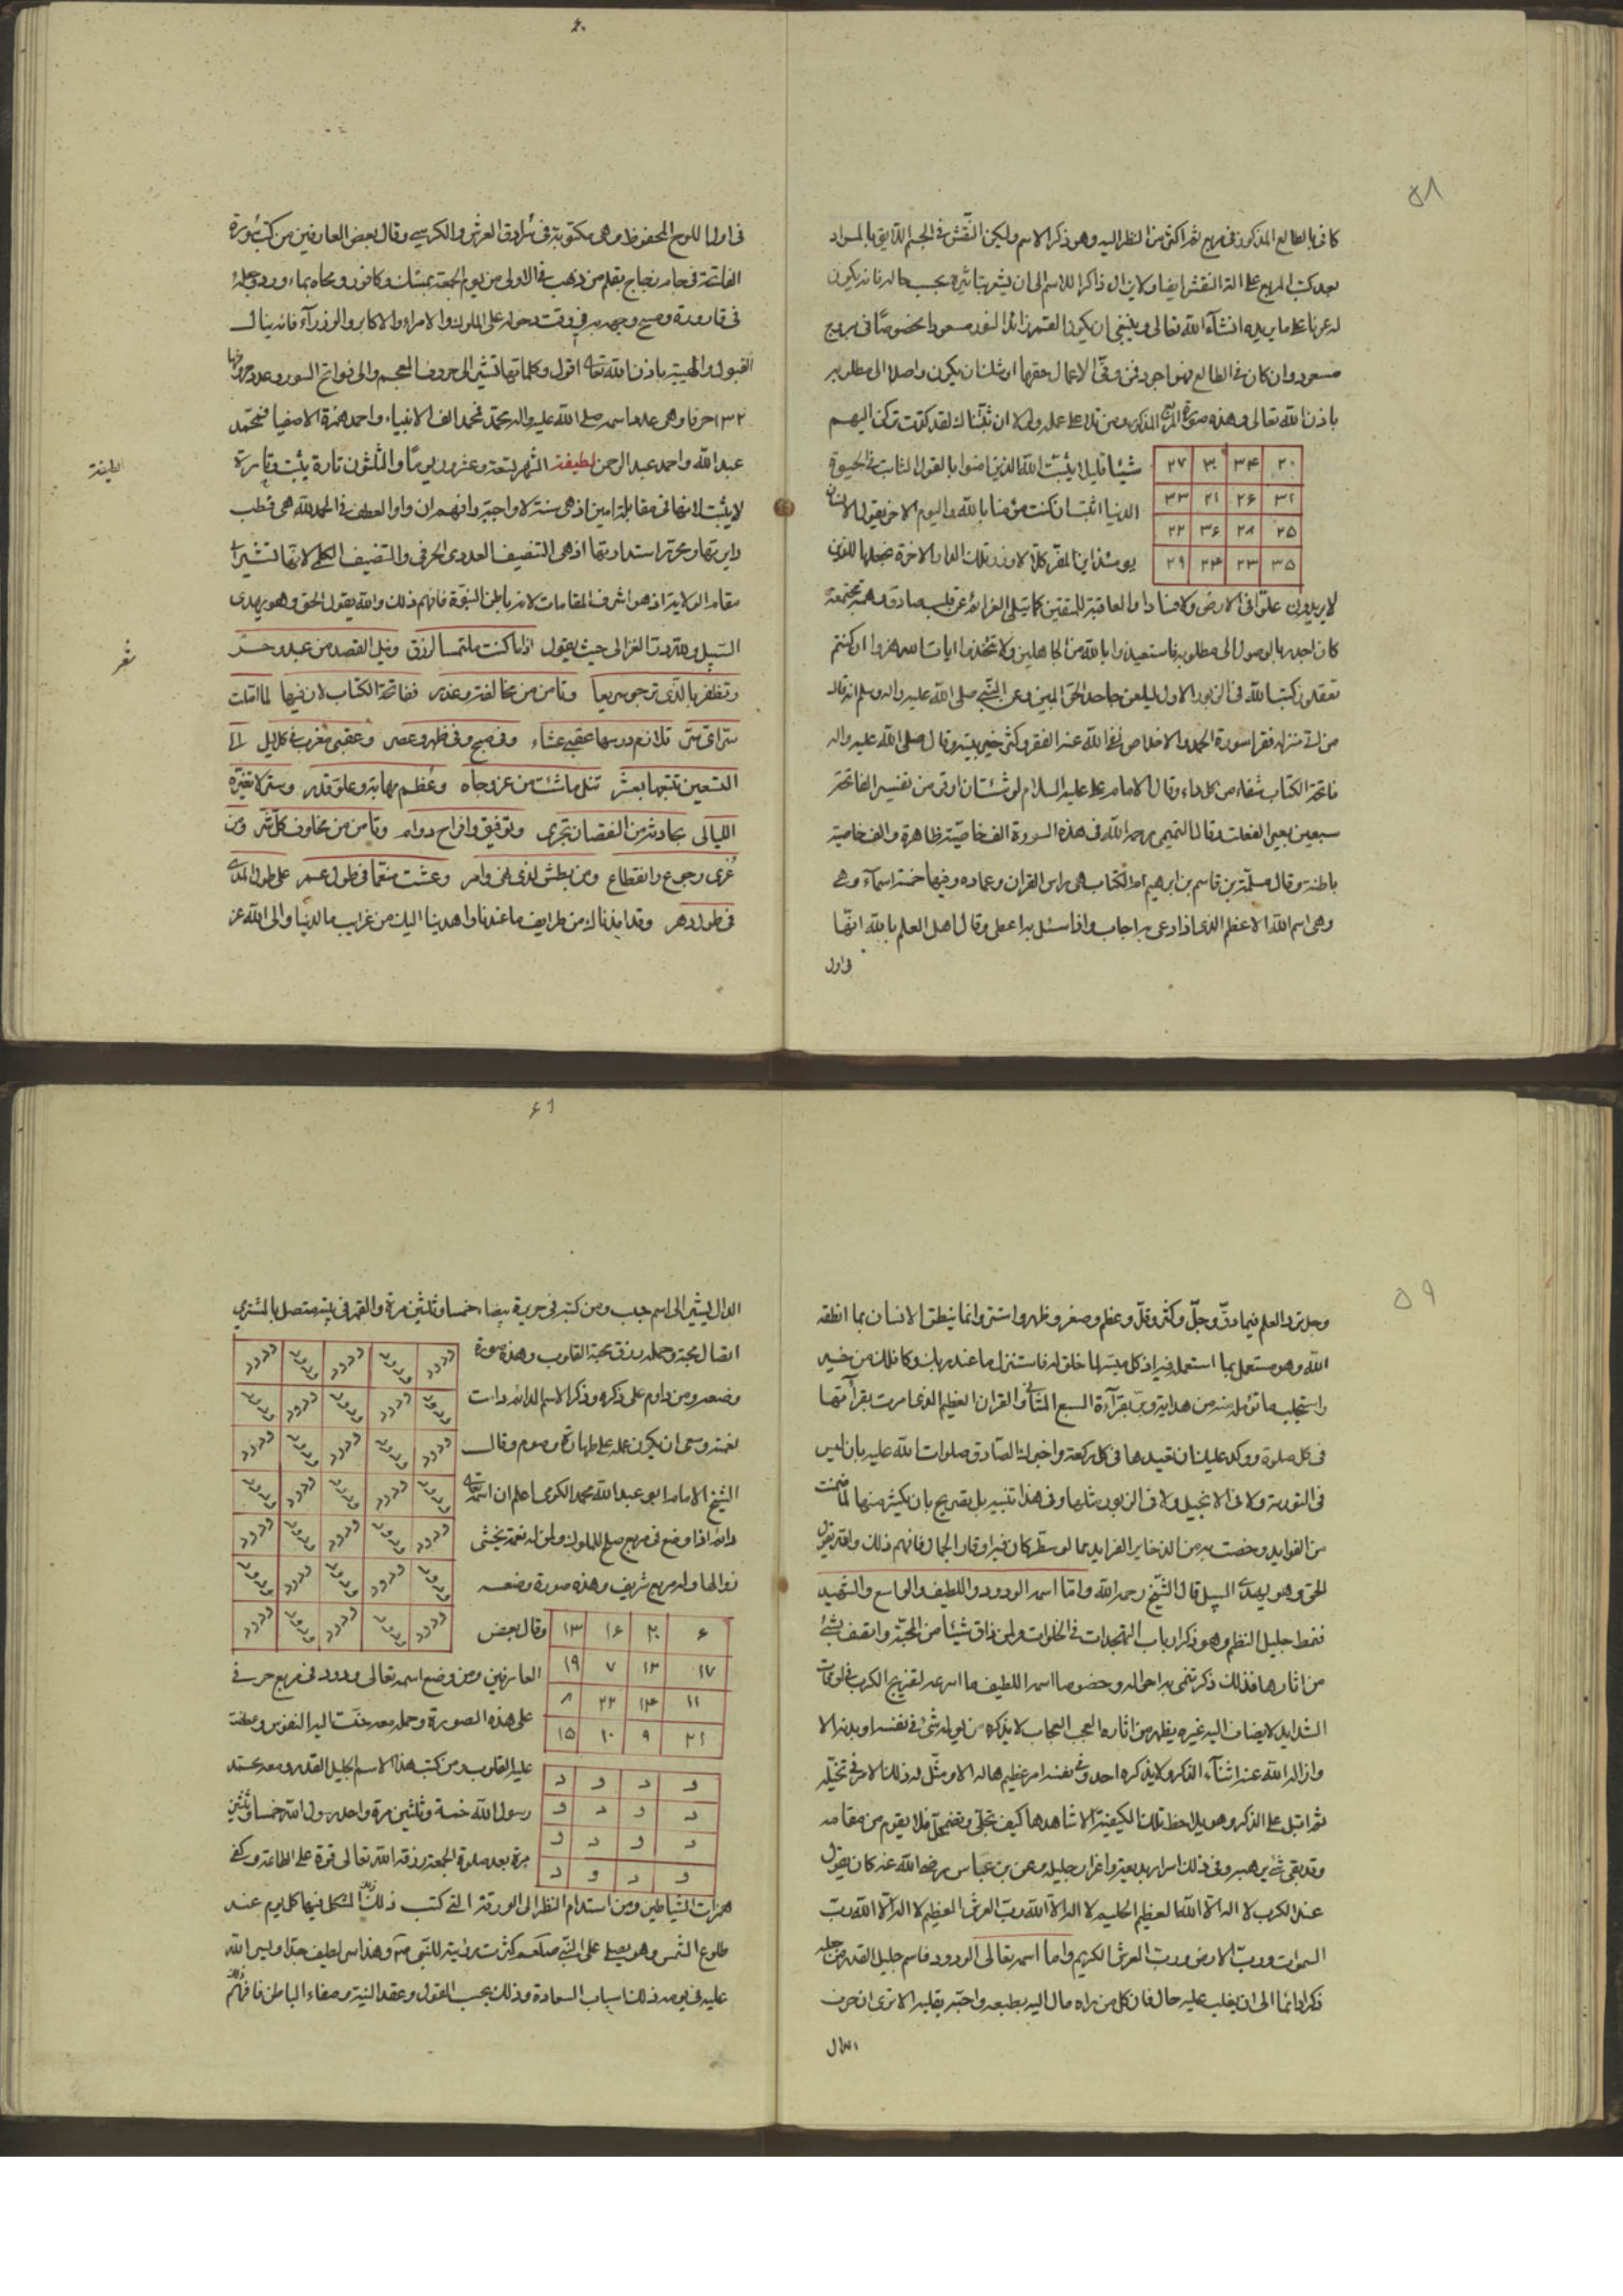 ٥٨
كافي بالطالع المذكور في مربع ثم اكثر من النظر اليه وهو ذكر الاسم وليكن النقش في الجسم اللايق بالمراد
بعد كتب المربع على النقش ايضا ولا يزال ذاكرا للاسم الى ان يشعر بتاثيره بحسب حاله فانه يكون
له عونا على ما يريده انشآء الله تعالى وينبغي ان يكون القمر زائد النور مسعودا خصوصًا في بروج
مسعود وان كان في الطالع فهو اجود فمن وفّى الاعمال حقها اوشك ان يكون واصلا الى مطلوبه
باذن الله تعالى وهذه صورة المربع المذكور ومن تلا على عمله ولولا ان ثبّتناك لقد كدت تركن اليهم
شيئا قليلا يثبّت الله الذين امنوا بالقول الثابت في الحيوة
الدنيا اثبت ان كنت مؤمنا بالله واليوم الاخر يقول الانسان
يومئذ اين المفرّ كلا لا وزر تلك الدار الاخرة نجعلها للذين
٢٧ ٣٠ ٣٤ ٢٠
٣٣ ٢١ ٢۶ ٣١
٢٢ ٣۶ ٢٨ ٢۵
٢٩ ٢۴ ٢٣ ٣۵
لا يريدون علوّا في الارض ولا فسادا والعاقبة للمتقين كما يتلى العزائم عن قلب صادق وهمة مجتمعة
كان اجدر بالوصول الى مطلوبه فاستعيذوا بالله من الجاهلين ولا تتخذوا ايات الله هزوا ان كنتم
تعقلون كتب الله في الزبور الاول ليلعن جاحد الحق المبين وعن النبي صلى الله عليه واله وسلم انه قال
من اتى منزله فقرا سورة الحمد والاخلاص نفى الله عنه الفقر وكثر خير بيته وقال صلى الله عليه واله
فاتحة الكتاب شفاء من كل داء وقال الامام على عليه السلام لو شئت ان اوقر من تفسير الفاتحة
سبعين بعيرا لفعلت وقال التميمي رحمه الله في هذه السورة الف خاصيّة ظاهرة والف خاصية
باطنة وقال مسلمة بن قاسم بن ابرهيم ام الكتاب هي راس القران وعماده وفيها خمسة اسمآء وهي
وهي اسم الله الاعظم الذي اذا دعى به اجاب واذا سئل به اعطى وقال اهل العلم بالله انّها
في اول
۶٠
في اول اللوح المحفوظ وهي مكتوبة في سرادق العرش والكرسي وقال بعض العارفين من كتب سورة
الفاتحة في جام زجاج بقلم من ذهب في الاولى من يوم الجمعة بمسك وكافور ومحاه بماء ورد وجعله
في قارورة ومسح وجهه به في وقت دخوله على الملوك والامراء والاكابر والوزرآء فانه ينال
القبول والهيبة باذن الله تعالى اقول وكلماتها تشير الى حروف المعجم والى فواتح السور وعدد حروفها
١٣٢ حرفا وهي عدد اسمه صلى الله عليه واله محمد فمحمد الف الانبياء واحمد همزة الاصفيا فمحمد
عبد الله واحمد عبد الرحمن لطيفة الشهر تسعة وعشرون يومًا والثلثون تارة يثبت وتارة
لا يثبت لانها في مقابلة امين اذ هي سنة لا واجبة وافهم ان واو العطف في الحمد لله هي قطب
دايرتها ومحرّر استدارتها اذ هي التنصيف العددى الحرفي والتنصيف الكلى لانّها تشير الى
مقام الولاية اذ هو اشرف المقامات لانه باطن النبوة فافهم ذلك والله يقول الحق وهو يهدى
السبيل ولله درّ الغزالى حيث يقول اذا ما كنت ملتمسا لرزق ونيل القصد من عبد وحرّ
وتظفر بالذي ترجو سريعا وتامن من مخالفة وغدر ففاتحة الكتاب لان فيها لما املت
سرّا اى سرّ تلازم درسها عقبى عشاء وفي صبح وفي ظهر وعصر وعقبى مغرب في كل ليل الى
التسعين تتبعها بعشر تنل ما شئت من عز وجاه وعظم مهابة وعلوّ قدر وستر لا تغيّره
الليالى بحادثة من النقصان تجرى وتوفيق وافراح دواما وتامن من مخاوف كل شر ومن
عُرى وجوع وانقطاع ومن بطش لذى نهى وامر وعشت منعّما في طول عمر على طول المدى
في طول دهر وقد افدناك من طرايف ما عندنا واهدينا اليك من غرايب ما لدينا والى الله عز
لطيفة
شعر
٥٩
وجل يرد العلم فيما دقّ وجلّ وكثر وقلّ وعظم وصغر وظهر واستتر وانما ينطق الانسان بما انطقه
الله وهو مستعمل بما استعمل فيه اذ كل ميسّر لما خلق له فاستنزل ما عند ربك وكافلك من خير
واستجلب ما تؤمله منه من هداية وبرّ بقرآءة السبع المثاني والقران العظيم الذى امرت بقرآءتها
في كل صلوة ووكد عليك ان تعيدها في كل ركعة واخبرك الصّادق صلوات الله عليه بان ليس
في التورية ولا في الانجيل ولا في الزبور مثلها وفي هذا تنبيه بل تصريح بان يكثر منها لما ضمنت
من الفوايد وخصت به من الذخاير الفرايد مما لو سطر كان فيه اوقار الجمال فافهم ذلك والله يقول
الحق وهو يهدى السبيل قال الشيخ رحمه الله وامّا اسمه الودود واللطيف والواسع والشهيد
فنمط جليل النظم وهو ذكر ارباب التهجدات في الخلوات ولمن ذاق شيئا من المحبّة واتصف بشئ
من اثارها فذلك ذكر تنمى به احواله وخصوصا اسمه اللطيف ما اسرعه لتفريج الكرب في اوقات
الشدايد لا يضاف اليه غيره يظهر من اثاره العجب العجاب لا يذكره من لحقه شئ في نفسه او بدنه الا
وازاله الله عنه اثنآء الذكر ولا يذكره احد وفي نفسه امر عظيم هاله الا ومثّل له ذلك الامر في تخيّله
ثم اقبل على الذكر وهو يلاحظ تلك الكيفية الا شاهدها كيف تجلّى وتضمحلّ فلا يقوم من مقامه
وقد بقى شئ يرهبه وفي ذلك اسرار بديعة واغراز جليلة وعن بن عبّاس رضى الله عنه كان يقول
عند الكرب لا اله الا الله العظيم الحليم لا اله الا الله رب العرش العظيم لا اله الا الله ربّ
السموات وربّ الارض ورب العرش الكريم واما اسمه تعالى الودود فاسم جليل القدر من جعله
ذكرا دائما الى ان يغلب عليه حال فان كل من راه مال اليه بطبعه واحبّه بقلبه الا ترى ان حرف
الدال
۶١
الدال يشير الى اسم حبيب ومن كتبه في حريرة بيضاء خمسا وثلثين مرة والقمر في بيته متصل بالمشترى
اتصال محبة وحمله رزق محبة القلوب وهذه صورة
وضعه ومن داوم على ذكره وذكر الاسم الدائم دامت
نعمته وسعى ان يكون عمله على طهارة وصوم وقال
الشيخ الامام ابو عبد الله محمد الكومى اعلم ان اسمه تعالى
دائم اذا وضع في مربع صلح للملوك ولمن له نعمة يخشى
زوالها وله مربع شريف وهذه صورة وضعه
ودود ودود ودود ودود ودود
ودود ودود ودود ودود ودود
ودود ودود ودود ودود ودود
ودود ودود ودود ودود ودود
ودود ودود ودود ودود ودود
ودود ودود ودود ودود ودود
ودود ودود ودود ودود ودود
وقال بعض
العارفين ومن وضع اسمه تعالى ودود في مربع حرفي
على هذه الصورة وحمله معه حنّت اليه النفوس وعطفت
١٣ ١۶ ٢٠ ۶
١٩ ٧ ١٢ ١٧
٨ ٢٢ ١۴ ١١
١۵ ١٠ ٩ ٢١
عليه القلوب ومن كتب هذا الاسم الجليل القدر ومعه محمد
رسول الله خمسة وثلثين مرة واحمد رسول الله خمسا وثلثين
مرة بعد صلوة الجمعة رزقه الله تعالى قوة على الطاعة وكفى
د و د و
و د و د
و د و د
د و د و
همزات الشياطين ومن استدام النظر الى الورقة التي كتب ذلك الشكل فيها كل يوم عند
طلوع الشمس وهو يصلى على النبي صلعم كثرت رؤيته للنبى صلعم وهذا سر لطيف جدا ويسر الله
عليه في يومه ذلك اسباب السعادة وذلك بحسب القول وعقد النية وصفاء الباطن فافهم ذلك